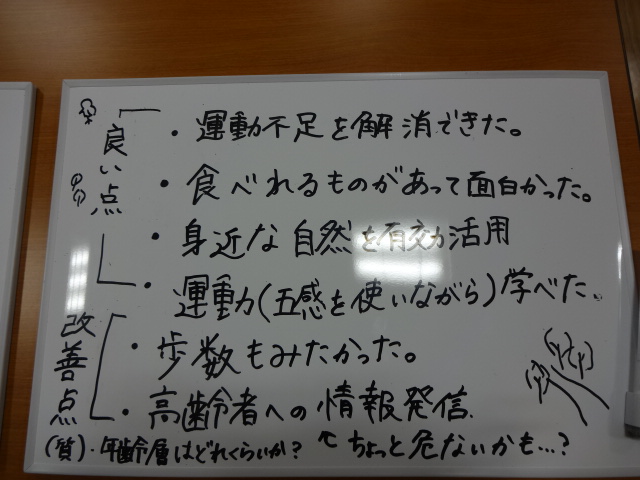 良い点
・運動不足を解消できた。
・食べれるものがあって面白かった。
・身近な自然を有効活用
・運動力(五感を使いながら)学べた。
改善点
・歩数もみたかった。
・高齢者への情報発信.
(質)・年齢層はどれくらいか?
↖ちょっと危ないかも…?